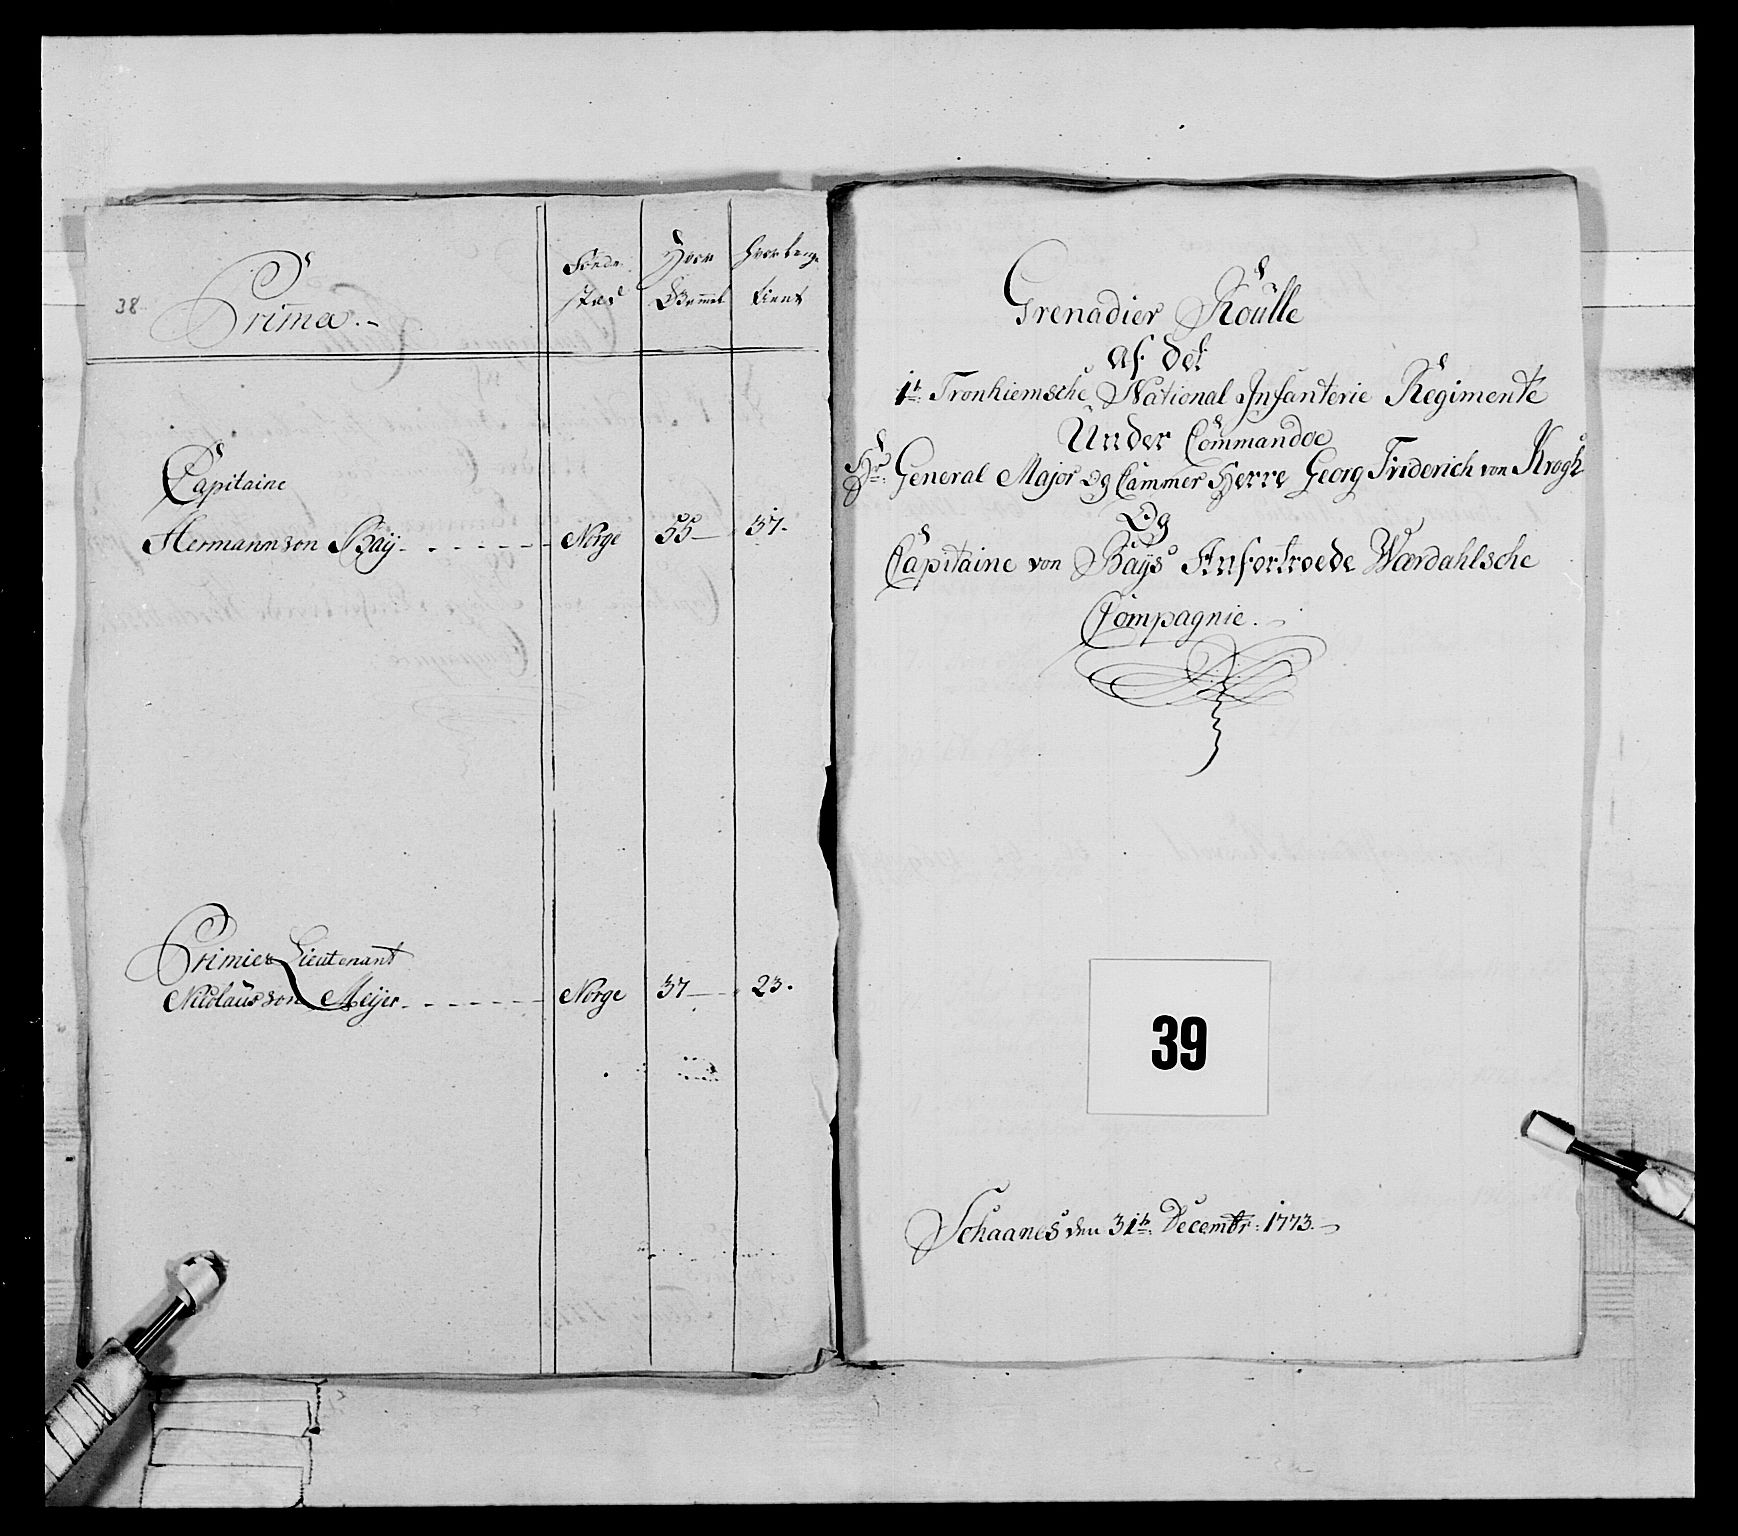 38.
Prima.-
Føde
sted
Hvor
Gammel
Hvorlenge
tient
Capitaine
Hermann von Baÿ - - - - - - Norge 55 — 37.
Primier Lieutenant
Nicolaus von Meÿer - - - - - - Norge 37 — 23.
Grenadier Roulle
af det
1te Tronhiemsche National Infanterie Regimente
Under Commandoe
Hr: General Major Og Cammer Herre Georg Friderich von Krogh
Og
Capitaine von Baÿs Anfortroede Wærdahlsche
Compagnie.-
39
Schaanes den 31te Decembr: 1773.-